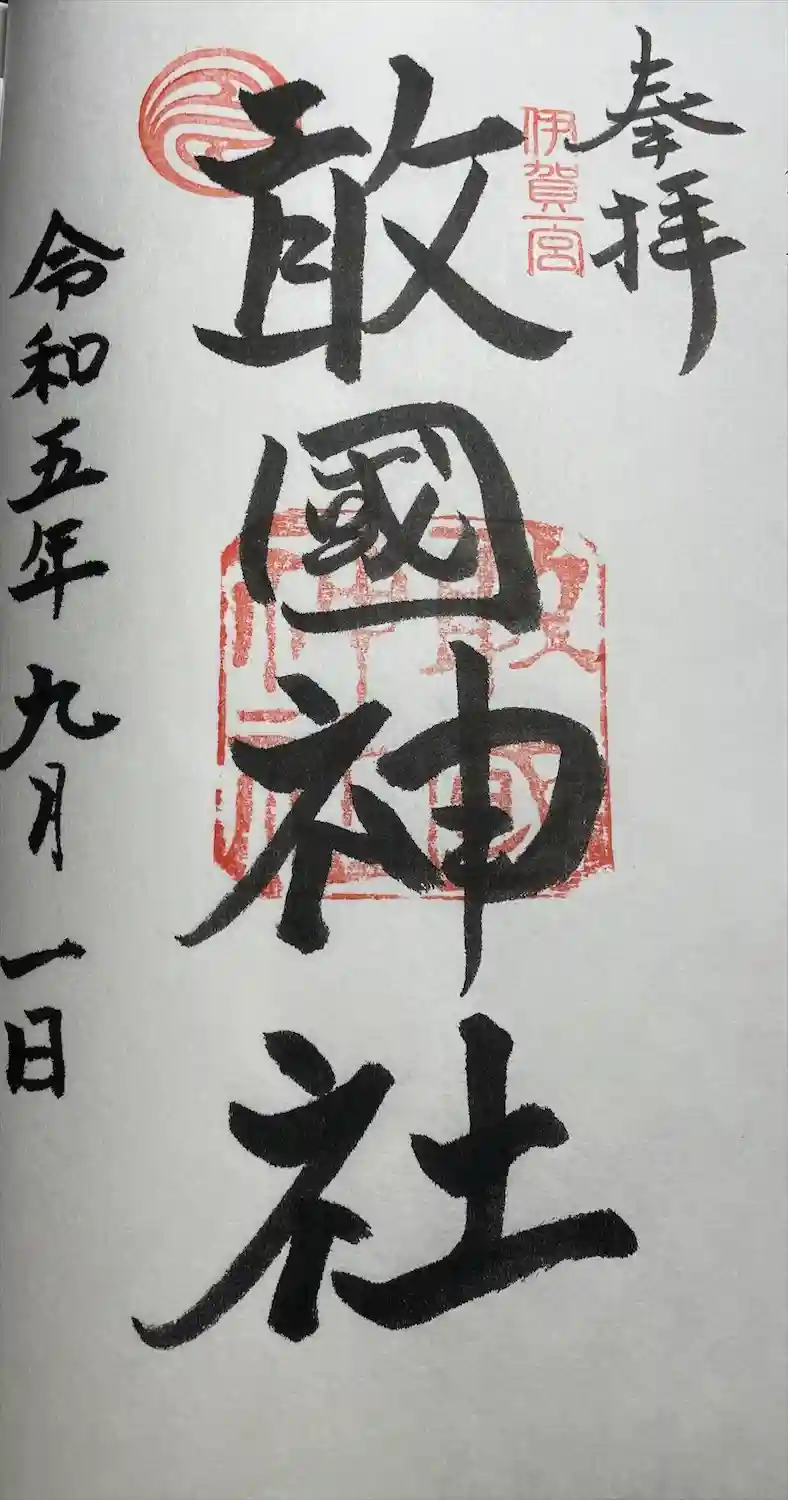 奉拝
伊賀一宮
敢國神社
敢國
神社
令和五年九月一日